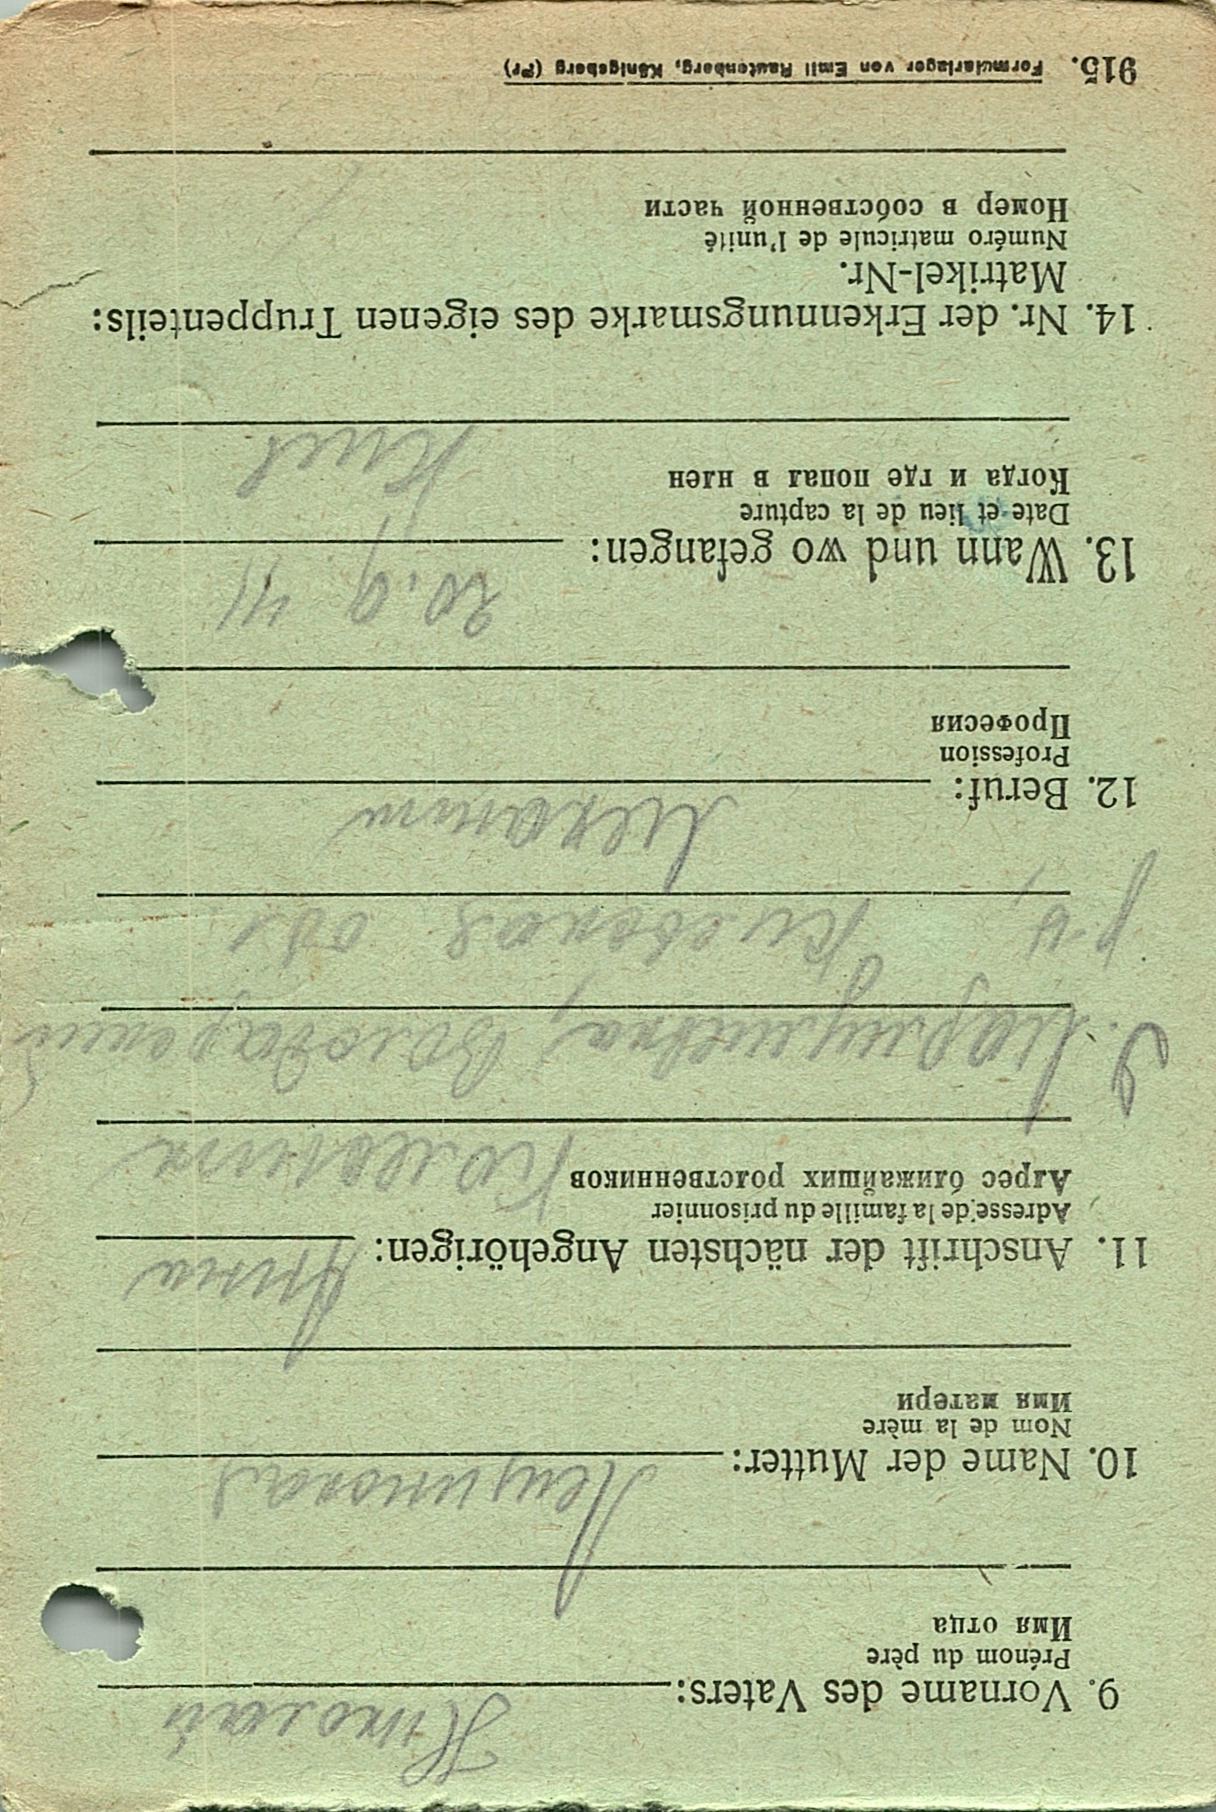 9. Vorname des Vaters: Николай
Prénom du père
Имя отца
10. Name der Mutter:
Nom de la mère
Имя матери
11. Anschrift der nächsten Angehörigen: Анна
Adresse de la famille du prisonnier
Адрес ближайших родственников
Киевская обл
12. Beruf: Механик
Profession
Професия
20. 9. 41
13. Wann und wo gefangen:
Date et lieu de la capture
Когда и где попал в плен Киев
14. Nr. der Erkennungsmarke des eigenen Truppenteils:
Matrikel-Nr.
Numéro matricule de l'unité
Номер в собственной части
915. Formularlager von Emil Rautenberg, Königsberg (Pr)